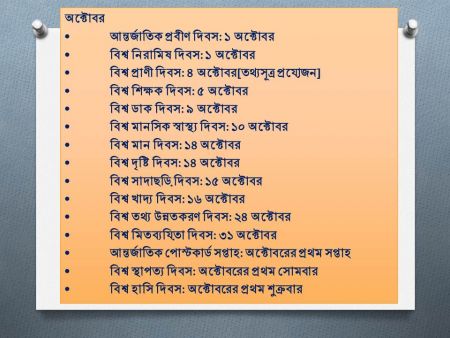 অক্টোবর
• আন্তর্জাতিক প্রবীণ দিবস: ১ অক্টোবর
• বিশ্ব নিরামিষ দিবস: ১ অক্টোবর
• বিশ্ব প্রাণী দিবস: ৪ অক্টোবর[তথ্যসূত্র প্রয়োজন]
• বিশ্ব শিক্ষক দিবস: ৫ অক্টোবর
• বিশ্ব ডাক দিবস: ৯ অক্টোবর
• বিশ্ব মানসিক স্বাস্থ্য দিবস: ১০ অক্টোবর
• বিশ্ব মান দিবস: ১৪ অক্টোবর
• বিশ্ব দৃষ্টি দিবস: ১৪ অক্টোবর
• বিশ্ব সাদাছড়ি দিবস: ১৫ অক্টোবর
• বিশ্ব খাদ্য দিবস: ১৬ অক্টোবর
• বিশ্ব তথ্য উন্নতকরণ দিবস: ২৪ অক্টোবর
• বিশ্ব মিতব্যয়িতা দিবস: ৩১ অক্টোবর
• আন্তর্জাতিক পোস্টকার্ড সপ্তাহ: অক্টোবরের প্রথম সপ্তাহ
• বিশ্ব স্থাপত্য দিবস: অক্টোবরের প্রথম সোমবার
• বিশ্ব হাসি দিবস: অক্টোবরের প্রথম শুক্রবার